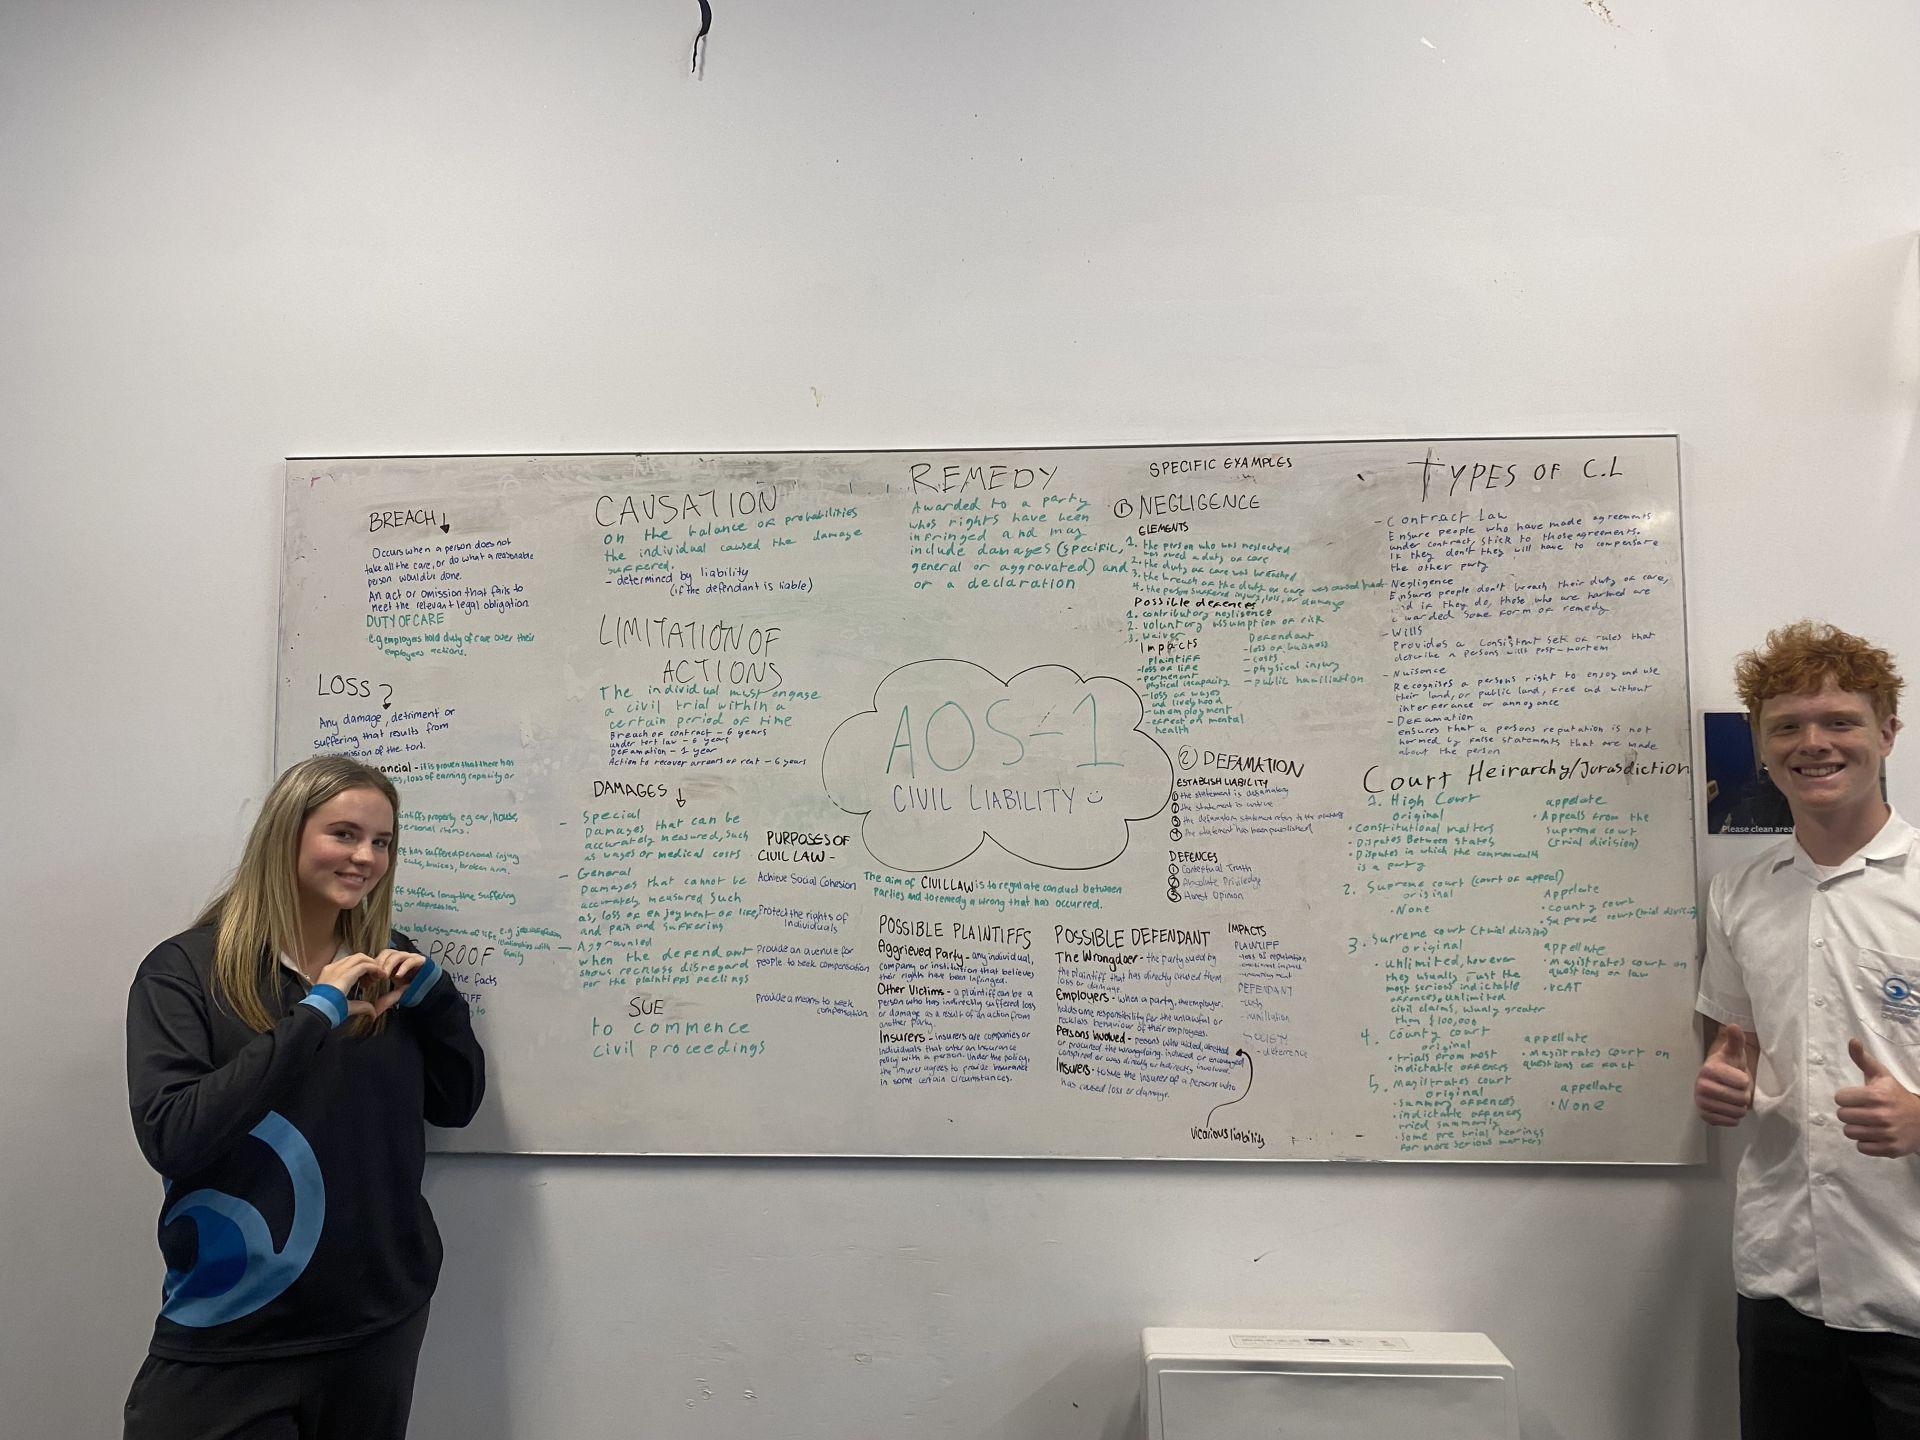 BREACH
Occurs when a person does not
take all the care, or do what a reasonable
person would've done.
An act or omission that fails to
meet the relevant legal obligation
DUTY OF CARE
e.g employers hold duty of care over their
employees actions.
LOSS
Any damage, detriment or
suffering that results from
of the tort.
- it is proven that there has
loss of earning capacity or
property e.g car, house,
personal items.
has suffered personal injury
cuts, bruises, broken arm.
long time suffering
or depression.
PROOF
the facts
CAUSATION
on the balance of probabilities
the individual caused the damage
suffered.
- determined by liability
(if the defendant is liable)
LIMITATION OF
ACTIONS
The individual must engage
a civil trial within a
certain period of time
Breach of contract - 6 years
under tort law - 6 years
Defamation - 1 year
Action to recover arrears of rent - 6 years
DAMAGES
- Special
Damages that can be
accurately measured, such
as wages or medical costs
- General
Damages that cannot be
accurately measured such
as, loss of enjoyment of life,
and pain and suffering
- Aggravated
when the defendant
shows reckless disregard
for the plaintiffs feelings
SUE
to commence
civil proceedings
PURPOSES OF
CIVIL LAW -
Achieve Social Cohesion
Protect the rights of
individuals
Provide an avenue for
people to seek compensation
Provide a means to seek
compensation
REMEDY
Awarded to a party
whos rights have been
infringed and may
include damages (specific,
general or aggravated) and
or a declaration
AOS-1
CIVIL LIABILITY
The aim of CIVIL LAW is to regulate conduct between
parties and to remedy a wrong that has occurred.
POSSIBLE PLAINTIFFS
Aggrieved Party - any individual,
company or institution that believes
their rights have been infringed.
Other Victims - a plaintiff can be a
person who has indirectly suffered loss
or damage as a result of an action from
another party.
Insurers - insurers are companies or
individuals that enter an insurance
policy with a person. Under the policy,
the insurer agrees to provide insurance
in some certain circumstances.
POSSIBLE DEFENDANT
The Wrongdoer - the party sued by
the plaintiff that has directly caused them
loss or damage.
Employers - when a party, the employer,
holds some responsibility for the unlawful or
reckless behaviour of their employees.
Persons involved - persons who aided, abetted
or procured the wrongdoing. induced or encouraged
conspired or was directly or indirectly involved.
Insurers - to sue the insurer of a persons who
has caused loss or damage.
vicarious liability
SPECIFIC EXAMPLES
① NEGLIGENCE
ELEMENTS
1. the person who was neglected
was owed a duty of care
2. the duty of care was breached
3. the breach of the duty of care was caused
4. the person suffered injury, loss, or damage
Possible defences
1. contributory negligence
2. voluntary assumption of risk
3. waiver
Impacts
Plaintiff
-loss of life
-permenent
physical incapacity
-loss of wages
and livelyhood
-unemployment
-effect on mental
health
Defendant
-loss of buisness
-costs
-physical injury
-public humiliation
② DEFAMATION
ESTABLISH LIABILITY
① the statement is defamatory
② the statement is untrue
③ the defamatory statement refers to the plaintiff
④ the statement has been published
DEFENCES
① Contextual Truth
② Absolute Priviledge
③ Honest Opinion
IMPACTS
PLAINTIFF
-loss of reputation
-emotional impact
-unemployment
DEFENDANT
-costs
-humiliation
SOCIETY
-deterence
TYPES OF C.L
- Contract Law
Ensure people who have made agreements
under contract, stick to those agreements.
If they don't they will have to compensate
the other party
- Negligence
Ensures people don't breach their duty of care,
and if they do, those who are harmed are
awarded some form of remedy
- Wills
Provides a consistent set of rules that
describe a persons will post-mortem
- Nuisance
Recognises a persons right to enjoy and use
their land, or public land, free and without
interferance or annoyance
- Defamation
ensures that a persons reputation is not
harmed by false statements that are made
about the person
Court Heirarchy/Jurasdiction
1. High Court
original
• Constitutional matters
• Disputes Between states
• Disputes in which the commonwealth
is a party
appelate
• Appeals from the
Supreme court
(trial division)
2. Supreme court (court of appeal)
original
• None
Appelate
• County court
• Supreme court (trial division)
3. Supreme court (trial division)
original
• Unlimited, however
they usually just the
most serious indictable
offences, unlimited
civil claims, usually greater
than $100,000
appellate
• Magistrates court on
questions on law
• VCAT
4. County court
original
• trials from most
indictable offences
appellate
• magistrates court on
questions of fact
5. Magistrates court
original
• Summary offences
• indictable offences
tried summarily
• some pre trial hearings
for more serious matters
appellate
• None
Please clean area